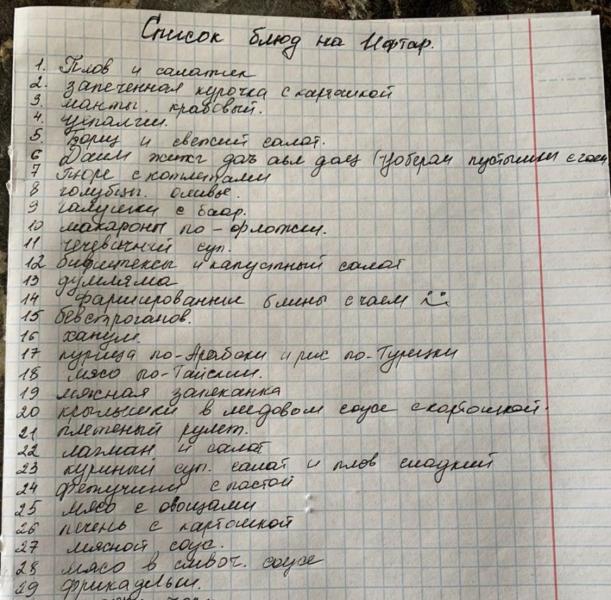 Список блюд на Ифтар.
1. Плов и салатик
2. запеченная курочка с картошкой
3. манты. крабовый.
4.
5. Борщ и свежий салат.
6
7 Пюре с котлетами
8 голубцы. оливье.
9 галушки с
10 макароны по-флотски.
11 чечевичный суп.
12 бифштексы и капустный салат
13 думляма
14 фаршированные блины с чаем
15 бевстроганов.
16 ханум.
17 курица по-Арабски и рис по-Турецки
18 мясо по-Тайски.
19 мясная запеканка
20 крылышки в медовом соусе с картошкой.
21 плетеный рулет.
22 лагман и салат
23 куриный суп. салат и плов сладкий
24 фетучини с пастой
25 мясо с овощами
26 печень с картошкой
27 мясной соус.
28 мясо в сливоч. соусе
29 фрикадельки.